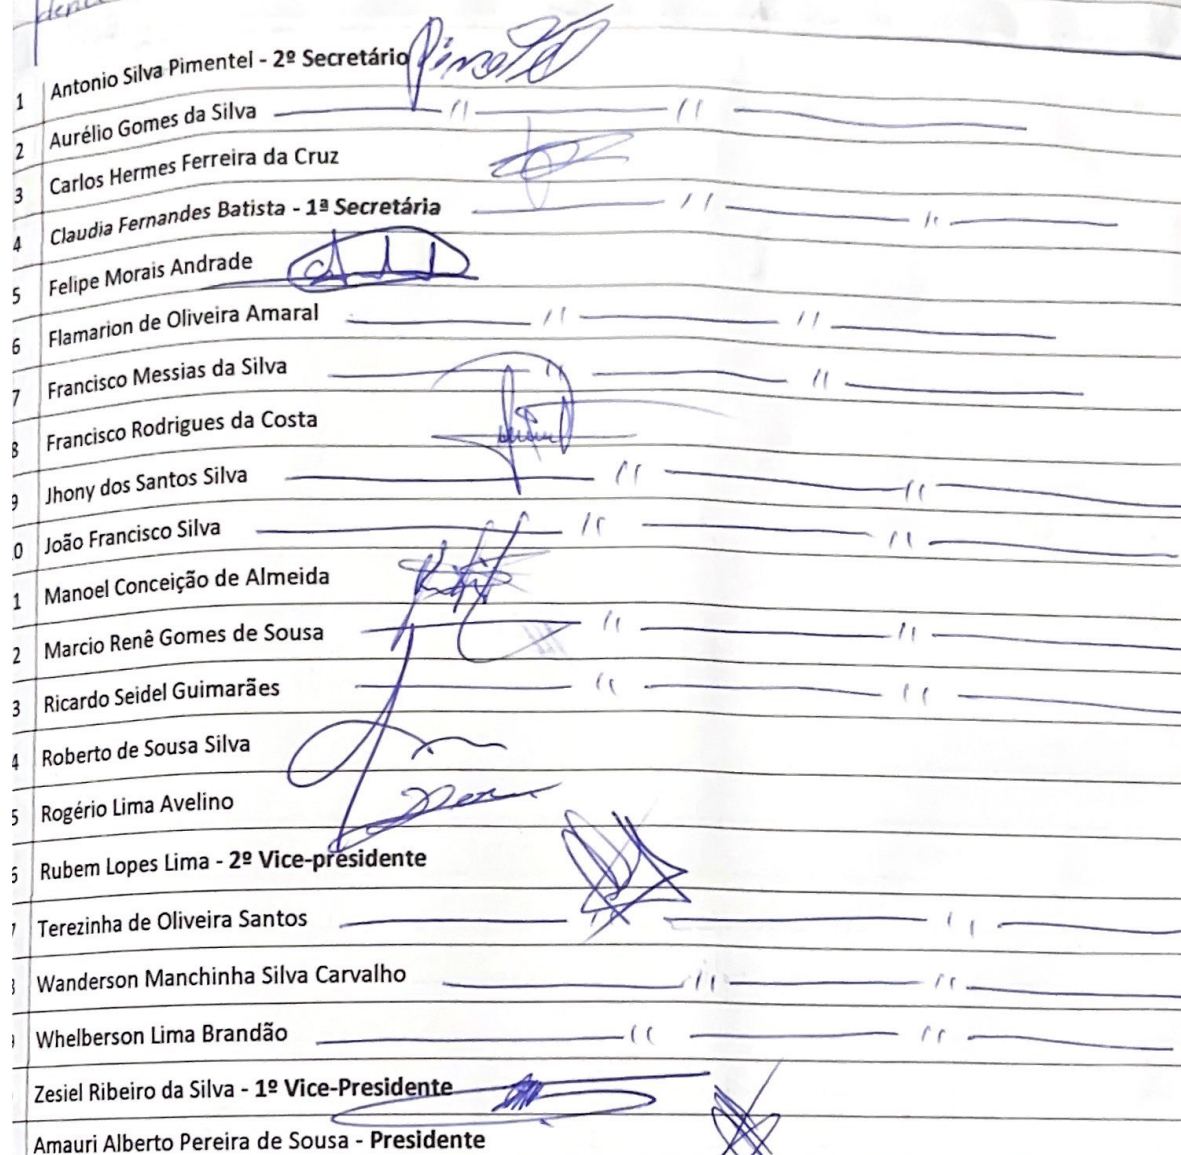 1 Antonio Silva Pimentel - 2º Secretário
2 Aurélio Gomes da Silva
3 Carlos Hermes Ferreira da Cruz
4 Claudia Fernandes Batista - 1ª Secretária
5 Felipe Morais Andrade
6 Flamarion de Oliveira Amaral
7 Francisco Messias da Silva
8 Francisco Rodrigues da Costa
9 Jhony dos Santos Silva
0 João Francisco Silva
1 Manoel Conceição de Almeida
2 Marcio Renê Gomes de Sousa
3 Ricardo Seidel Guimarães
4 Roberto de Sousa Silva
5 Rogério Lima Avelino
6 Rubem Lopes Lima - 2º Vice-presidente
Terezinha de Oliveira Santos
Wanderson Manchinha Silva Carvalho
Whelberson Lima Brandão
Zesiel Ribeiro da Silva - 1º Vice-Presidente
Amauri Alberto Pereira de Sousa - Presidente